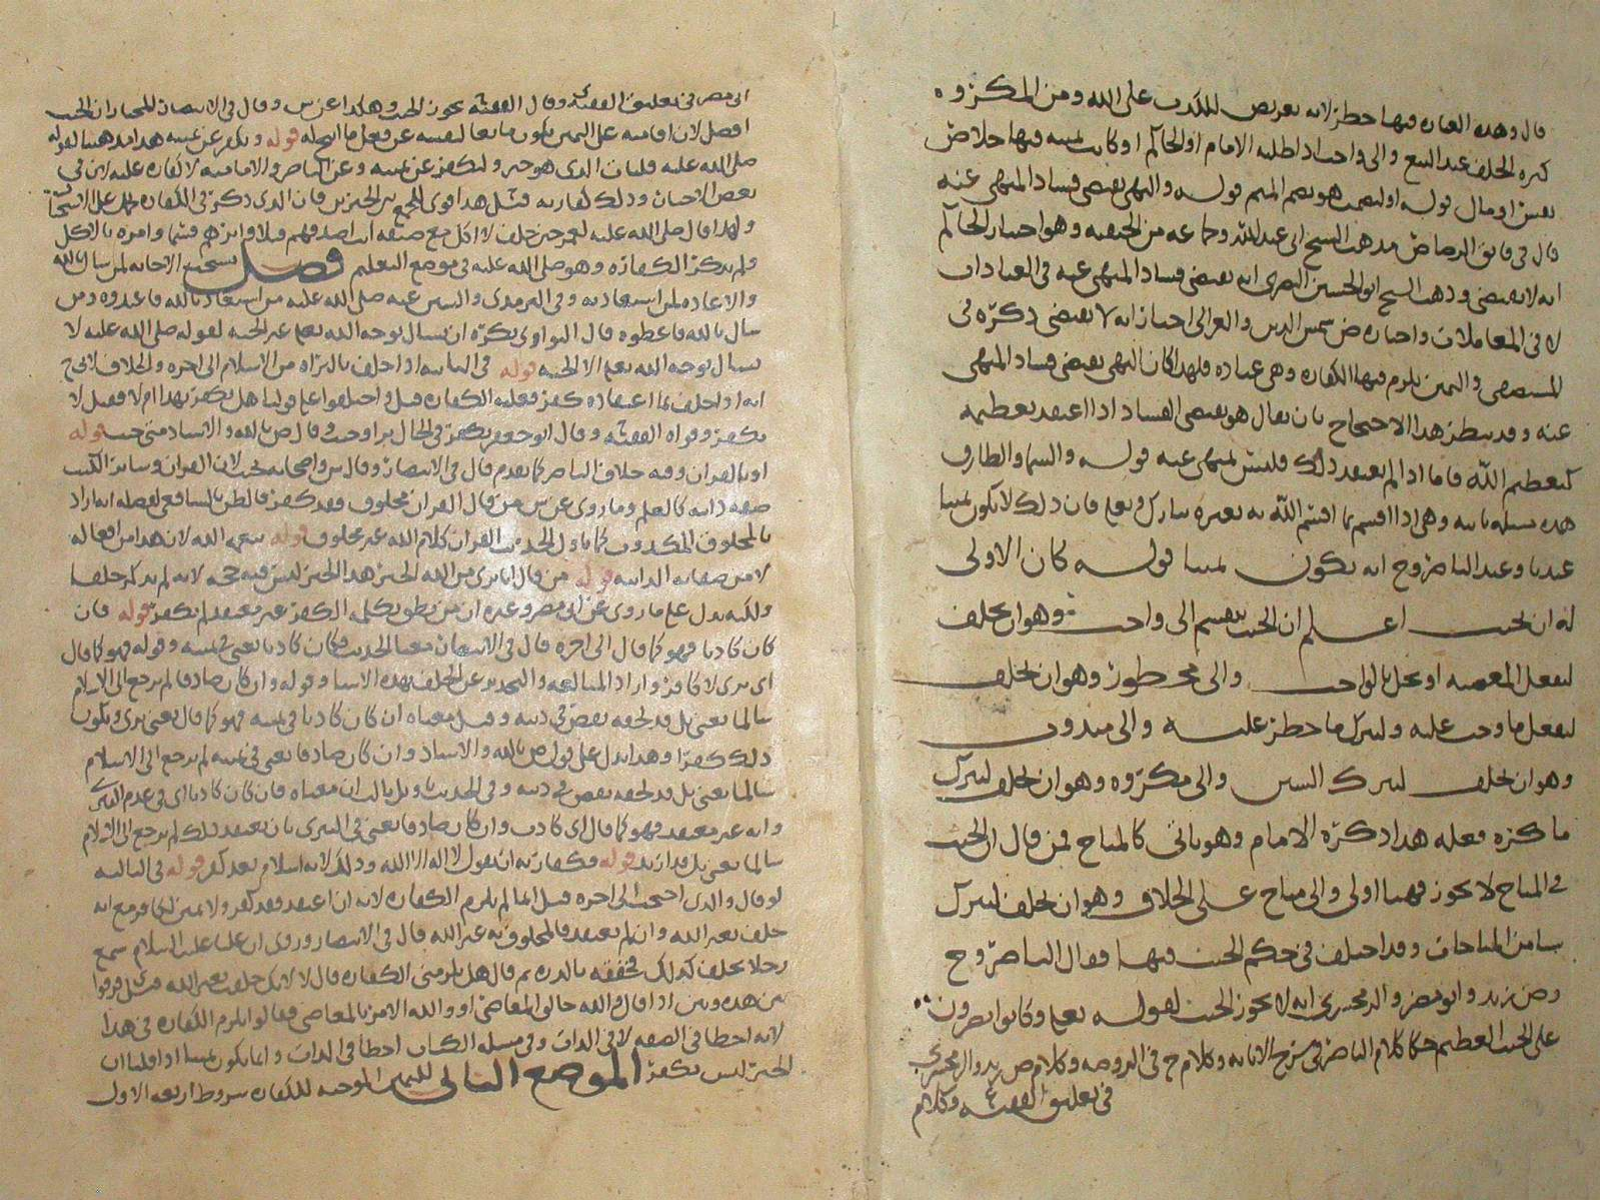 قال وهذه العبارة فيها حظر لانه تعريض للكذب على الله ومن المكروه
كره الحلف عند البيع والى واجب اذا طلبه الامام او الحاكم او كانت يمينه فيها خلاص
قوله او ليصمت هو بضم الميم قوله والنهي يقتضي فساد المنهي عنه
قال في فايق الرصاص مذهب الشيخ ابي عبدالله وجماعة من الحنفية وهو اختيار الحاكم
انه لا يقتضي وذهب الشيخ ابو الحسين البصري انه يقتضي فساد المنهي عنه في العبادات
لا في المعاملات واختاره ض شمس الدين والغزالي اختار انه لا يقتضي ذكره في
المستصفى واليمين يلزم فيها الكفارة وهي عبادة فلهذا كان النهي يقتضي فساد المنهي
عنه وقد ينظر هذا الاحتجاج بان يقال هو يقتضي الفساد اذا اعتقد تعظيمه
كتعظيم الله فاما اذا لم يعتقد ذلك فليس منهي عنه قوله والسما والطارق
هذه مسئلة ثانية وهي اذا اقسم بما اقسم الله به تبارك وتعلى فان ذلك لا يكون يمينا
عندنا وعند الناصر وح انه يكون يمينا قوله كان الاولى
له ان يحنث اعلم ان الحنث ينقسم الى واجب وهو ان يحلف
ليفعل المعصية او يخل بالواجب والى محظور وهو ان يحلف
ليفعل ما وجب عليه وليترك ما حظر عليه والى مندوب
وهو ان يحلف ليترك السنن والى مكروه وهو ان يحلف ليترك
ما كره فعله هذا ذكره الامام وهو ياتي كالمباح فمن قال ان الحنث
في المباح لا يجوز فهنا اولى والى مباح على الخلاف وهو ان يحلف ليترك
شيا من المباحات وقد اختلف في حكم الحنث فيها فقال الناصر وح
وض زيد وابو مضر والزمخشري انه لا يجوز الحنث لقوله تعلى وكانوا يصرون
على الحنث العظيم حكا كلام الناصر في شرح الابانه وكلام ح في الروضه وكلام ض زيد والزمخشري
في تعليق الفقيه وكلام
ابي مضر في تعليق الفقيه وقال الفقيه يجوز الحنث وهكذا عن س وقال في الانتصار المختار ان الحنث
افضل لان اقامته على اليمين يكون مانعا لنفسه عن فعل ما ابيح له قوله ويكفر عن يمينه هذا مذهبنا لقوله
صلى الله عليه فليات الذي هو خير وليكفر عن يمينه وعن الناصر والامامية لا كفارة عليه لان في
بعض الاخبار وذلك كفارته قيل هذا اقوى للجمع بين الخبرين فان الذي ذكره في الكفارة محمل على الاستحباب
ولهذا قال صلى الله عليه لعمر حين حلف لا اكل مع ضيفه انت اصدقهم قيلا وابرهم قسما وامره بالاكل
ولم يذكر الكفارة وهو صلى الله عليه في موضع التعليم فصل يستحب الاجابه لمن سال بالله
والاعاذه لمن استعاذ به وفي الترمذي والسنن عنه صلى الله عليه من استعاذ بالله فاعيذوه ومن
سال بالله فاعطوه قال النواوي يكره ان يسال بوجه الله تعلى غير الجنه لقوله صلى الله عليه لا
يسال بوجه الله تعلى الا الجنه قوله في الثانيه اذا حلف بالبراه من الاسلام الى اخره والخلاف
انه اذا حلف بما اعتقاده كفر فعليه الكفاره قيل واختلفوا على قولنا هل يكفر بهذا ام لا فقيل لا
يكفر وقواه الفقيه وقال ابو جعفر يكفر في الحال بر او حنث وقال ص بالله والاستاذ متى حنث قوله
او بالقران وفيه خلاف الناصر كما تقدم قال في الانتصار وقال ش واصحابه يحنث لان القران وسائر الكتب
صفه ذاته كالعلم وما روي عن ش من قال القران مخلوق فقد كفر فالظن بالشافعي لفضله انه اراد
بالمخلوق المكذوب كما تاول الحديث القران كلام الله غير مخلوق قوله بنعمه الله لان هذا من افعاله
لا من صفاته الذاتيه قوله من قال انا بري من الله الخبر هذا الخبر ليس فيه حجه لانه لم يذكر حلفا
ولكنه يدل على ما روي عن ابي مضر وغيره ان من نطق بكلمه الكفر غير معتقد لم يكفر قوله فان
كان كاذبا فهو كما قال الى اخره قال في الانتصار معنا الحديث فكان كاذبا يعني في يمينه وقوله فهو كما قال
اي بري لا كافر واراد المبالغه والتحذير عن الحلف بهذه الاشيا وقوله وان كان صادقا لم يرجع الى الاسلام
سالما يعني بل قد لحقه نقص في دينه وقيل معناه ان كان كاذبا في يمينه فهو كما قال يعني بري ويكون
ذلك كفرا وهذا يدل على قول ص بالله والاستاذ وان كان صادقا يعني في يمينه لم يرجع الى الاسلام
سالما يعني بل قد لحقه نقص في دينه وفي الحديث تاويل ثالث ان معناه فان كان كاذبا اي في عدم التبري
وانه غير معتقد فهو كما قال اي كاذب وان كان صادقا يعني في التبري بان يعتقد ذلك لم يرجع الى الاسلام
سالما يعني بل قد ارتد قوله فكفارته ان يقول لا اله الا الله وذلك لانه اسلام بعد كفر قوله في الثالثه
لو قال والذي احتجب الى اخره قيل انما لم يلزم الكفاره لانه ان اعتقد فقد كفر ولا يمين لكافر مع انه
حلف بغير الله وان لم يعتقد فالمحلوف به غير الله قال في الانتصار وروي ان عليا عليه السلام سمع
رجلا يحلف كذلك فخفقه بالدره ثم قال هل يلزمني الكفاره قال لا لانك حلفت بغير الله فقيل فرقوا
بين هذه وبين اذا قال والله خالق المعاصي او والله الامر بالمعاصي فقالوا يلزم الكفاره في هذا
لانه اخطا في الصفه لا في الذات وفي مسله الكتاب اخطا في الذات وانما يكون يمينا اذا قلنا ان
الجبر ليس بكفر الموضع الثاني لليمين الموجبه للكفاره شروط اربعه الاول